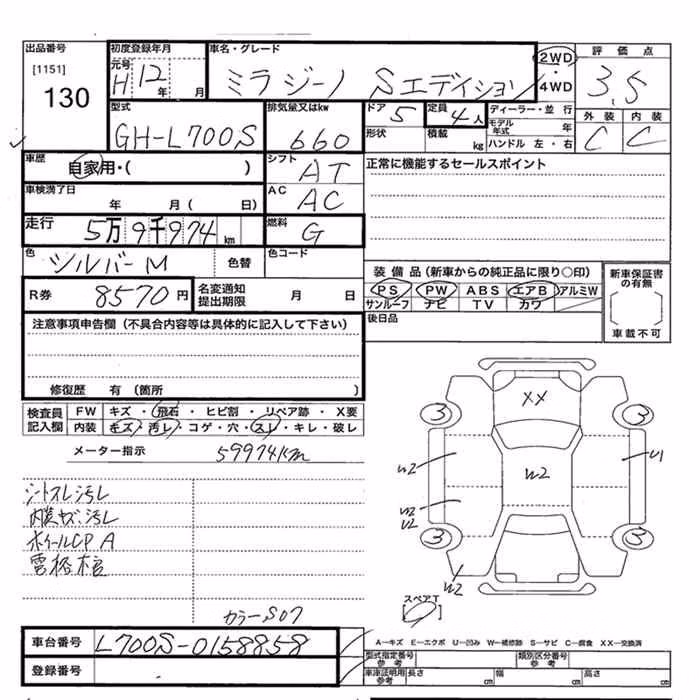 出品番号 初度登録年月 車名・グレード 評価点
[1151] 元号 2WD
130 H 12年 月 ミラジーノ Sエディション ・ 3.5
4WD
型式 排気量又はkw ドア 5 定員 4人 ディーラー・並行 外装 内装
GH-L700S 660 形状 積載 kg モデル年式 年 C C
ハンドル 左・右
車歴 シフト 正常に機能するセールスポイント
自家用・( ) AT
車検満了日 AC
年 月( 日) AC
走行 5万9千974km 燃料 G
色 色コード
シルバーM 色替 装備品(新車からの純正品に限り○印) 新車保証書の有無
R券 8570円 名変通知提出期限 月 日 PS PW ABS エアB アルミW
サンルーフ ナビ TV カワ
注意事項申告欄(不具合内容等は具体的に記入して下さい) 後日品 車載不可
修復歴 有(箇所 )
検査員記入欄 FW キズ・飛石・ヒビ割・リペア跡・X要
内装 キズ・汚レ・コゲ・穴・スレ・キレ・破レ
メーター指示 59974Km
XX
3 3
W2 W2 U1
W2
U2
3 3
W2
シートスレ汚レ
内張キズ、汚レ
ホイールCP A
スペアT
カラーS07
車台番号 L700S-0158858
登録番号
A―キズ E―エクボ U―凹み W―補修跡 S―サビ C―腐食 XX―交換済
型式指定番号 参考 類別区分番号 参考
車庫証明用参考 長さ cm 幅 cm 高さ cm